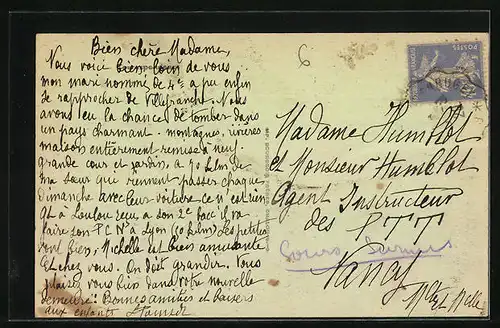 Bien chère Madame,
Nous voici bien loin de vous
mon mari nommé de 4e a pu enfin
se rapprocher de Villefranche. Nous
avons eu la chance de tomber dans
un pays charmant. montagnes, rivières
maison entièrement remise à neuf.
grande cour et jardin, à 70 klm de
ma sœur qui viennent passer chaque
dimanche avec leur voiture ce n'est rien
Loulou reçu a son 2e bac il va
faire son PCN à Lyon (50 klm) Les petites
vont bien, Michelle est bien amusante
Et chez vous. On doit grandir. Vous
plaisez vous bien dans votre nouvelle
demeure. Bonnes amitiés et baisers
aux enfants
6
POSTES
Madame Humblot
et Monsieur Humblot
Agent Instructeur
des PTT
Cours
Nancy
Mthe et Melle